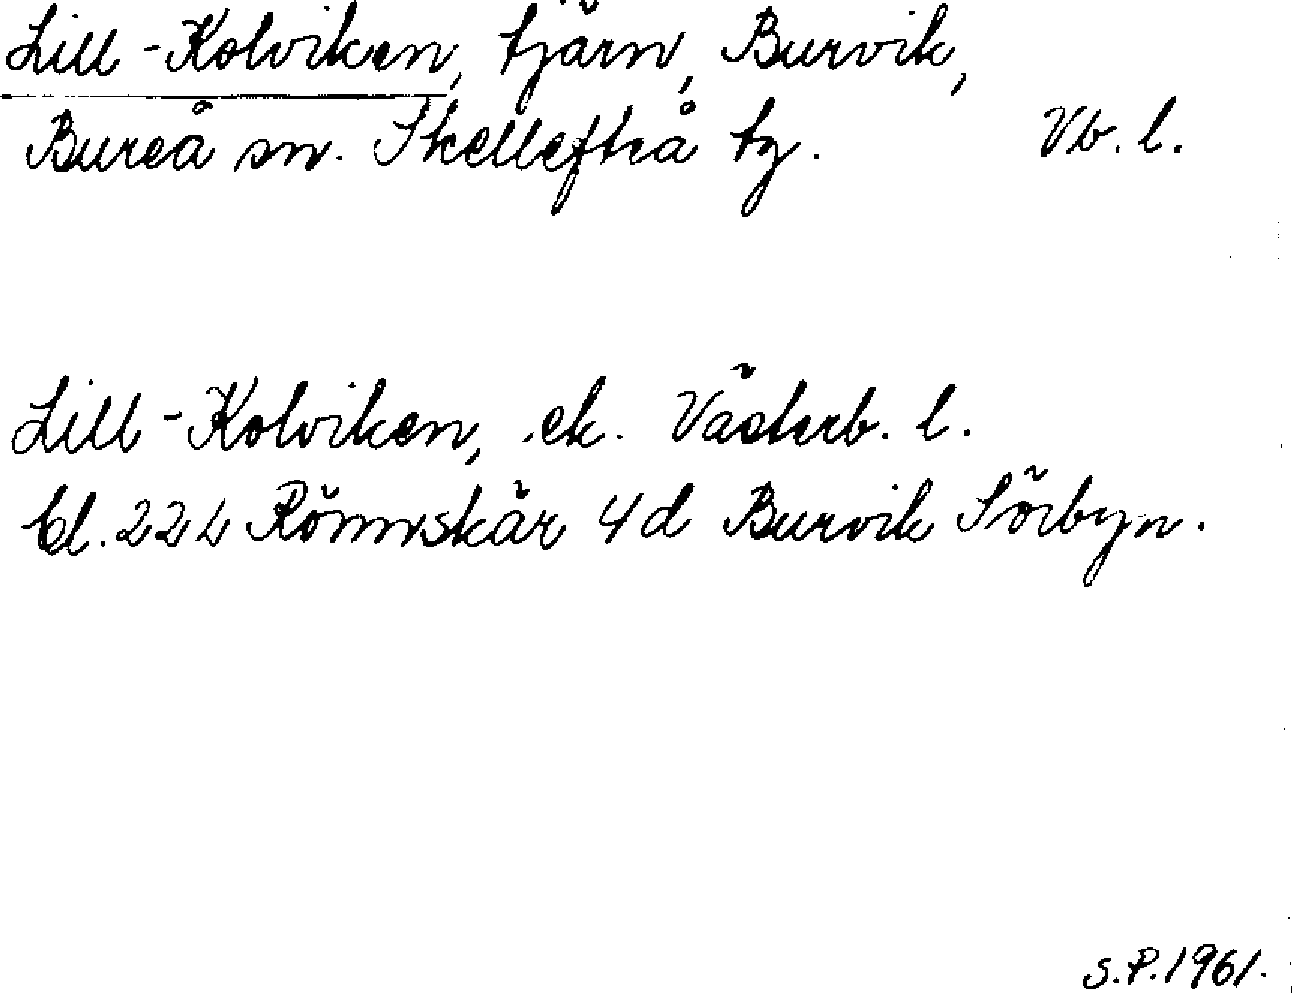 Lill-Kolviken, tjärn, Burvik,
Bureå sn. Skellefteå tg. Vb. l.
Lill-Kolviken, ek. Västerb. l.
bl. 22 L Rönnskär 4d Burvik Sörbyn.
S.P. 1961.